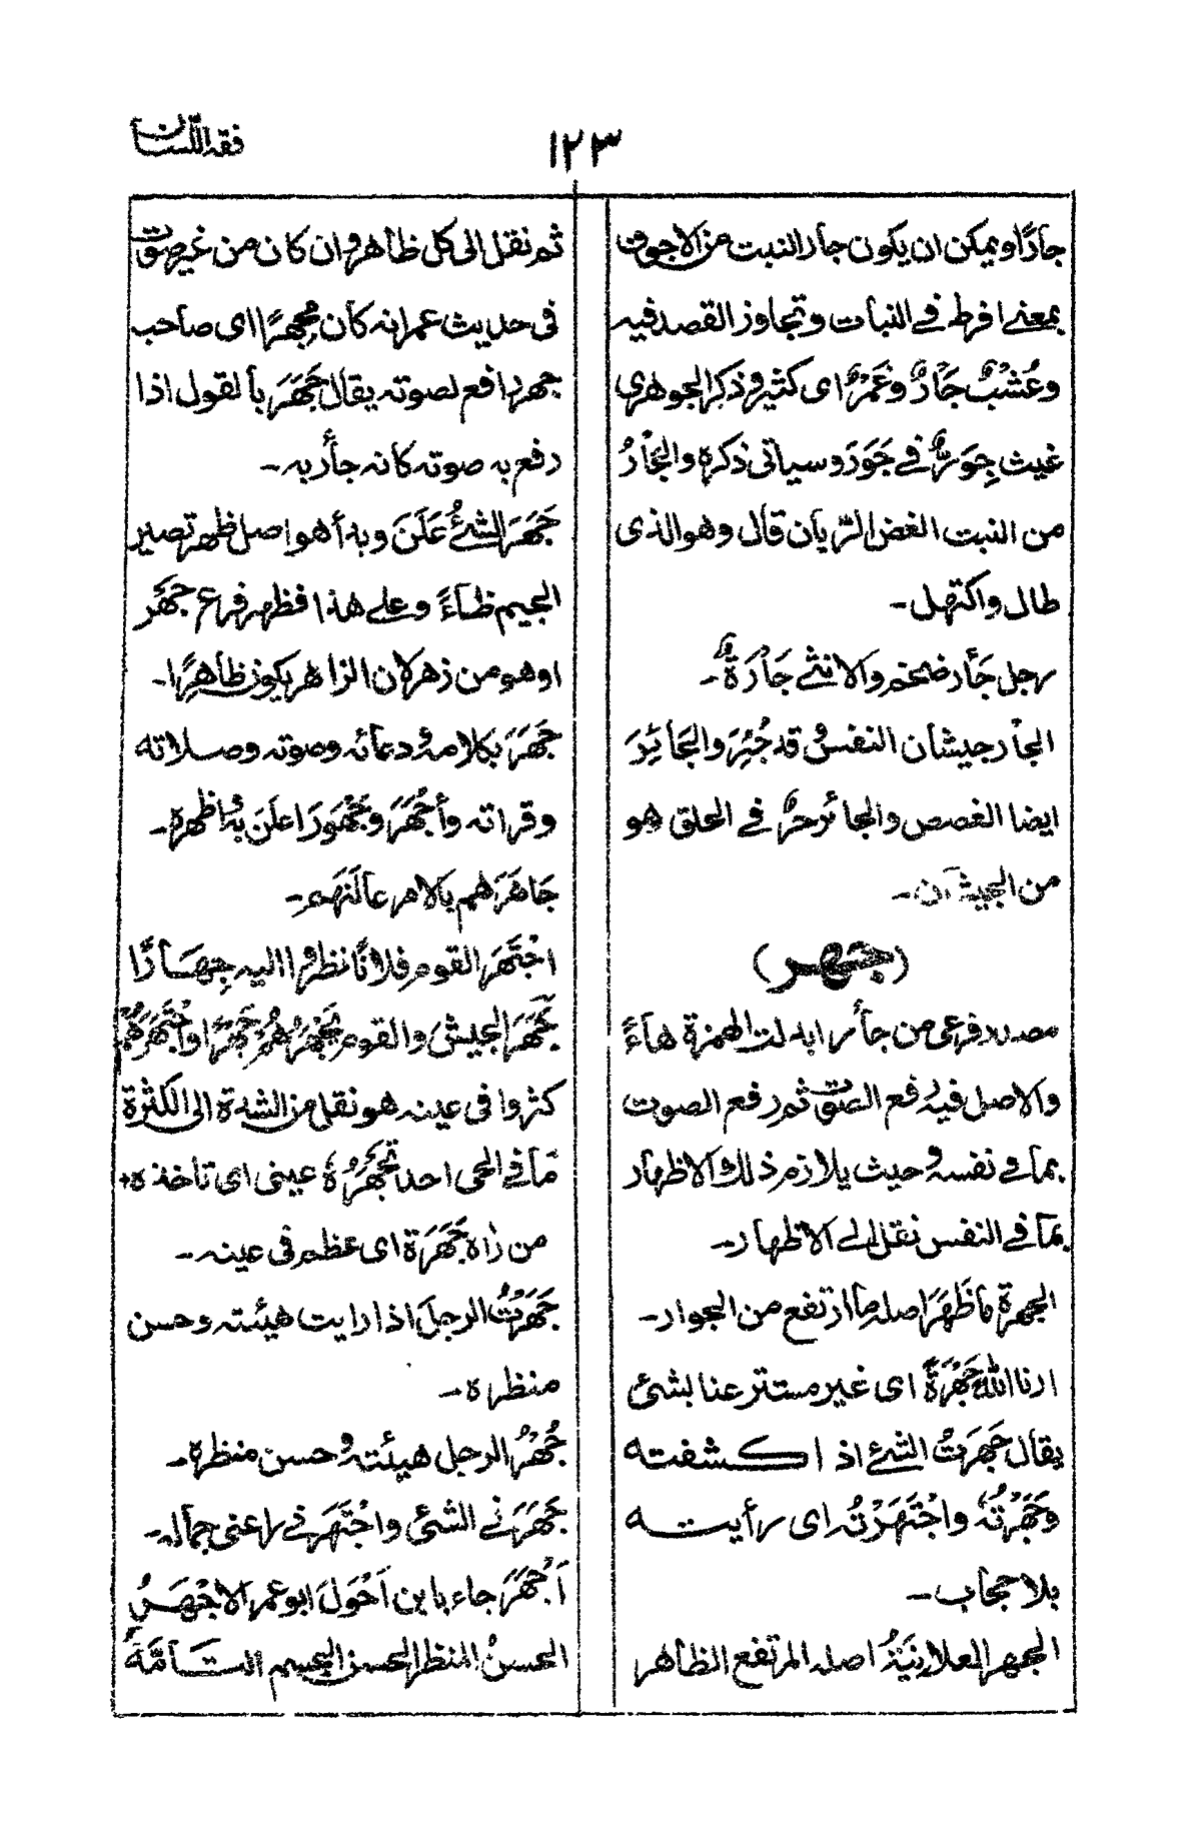 فقه اللسان
١٢٣
جأرًا ويمكن ان يكون جأر النبت من الاجوف
بمعنى افرط فى النبات وتجاوز القصد فيه
وعُشْبٌ جَأرٌ وغَمْرٌ اى كثير وذكر الجوهرى
غيث جِوَرٌّ فى جَوَرَ وسياتى ذكره والجَأرُ
من النبت الغض الرّيان قال وهو الذى
طال واكتهل۔
رجل جَأر ضخم والانثى جَأرَةٌ۔
الجأر جيشان النفس وقد جُئِرَ والجَائِرَ
ايضا الغصص والجائر حرٌّ فى الحلق هو
من الجيشان۔
(جهر)
مصدر فرعى من جأر ابدلت الهمزة هاءً
والاصل فيه رفع الصوت ثم رفع الصوت
بما فى نفسه وحيث يلازم ذلك الاظهار
بما فى النفس نقل الى الاظهار۔
الجهرة ما ظَهَرَ اصله ما ارتفع من الجوار۔
ارنا الله جَهْرَةً اى غير مستتر عنا بشئ
يقال جَهَرتُ الشئ اذا كشفته
وجَهَرْتُهُ واجْتَهَرْتُه اى رأيته
بلا حجاب۔
الجهر العلانيَةُ اصله المرتفع الظاهر
ثم نقل الى كل ظاهر وان كان من غير صوت
فى حديث عمر انه كان مِجْهَرًا اى صاحب
جهر رافع لصوته يقال جَهَرَ بالقول اذا
رفع به صوته كانه جأر به۔
جَهَرَ الشئُ عَلَنَ وبدأ هو اصل ظهر تصير
الجيم ظاءً وعلى هذا فظهر فرع جهَر
او هو من زهر لان الزاهر يكون ظاهرًا۔
جَهَرَ بكلامه ودعائه وصوته وصلاته
وقراته وأجْهَرَ وجَهْوَرَ اعلَن به واظهره۔
جَاهَرَهم بالامر عالَنَهم۔
اجْتَهَر القوم فلانًا نظروا اليه جِهَارًا
جَهَرَ الجيشَ والقوم يَجْهَرُهُمْ جَهْرًا واجْتَهَرَهُمْ
كثروا فى عينه هو نقل من الشدة الى الكثرة
مَا فى الحى احد تَجْهَرُهُ عينى اى تاخذه
من راه جَهَرَهُ اى عظم فى عينه۔
جَهَرْتُ الرجلَ اذا رايت هيئته وحسن
منظره۔
جُهْرُ الرجل هيئته وحسن منظره۔
جَهَرَنى الشئ واجْتَهَرَنى راعنى جماله۔
اَجْهَرَ جاء بابن اَحْوَلَ ابو عمر الاجْهَرُ
الحسنُ المنظر الحسن الجسم التَامَّهُ